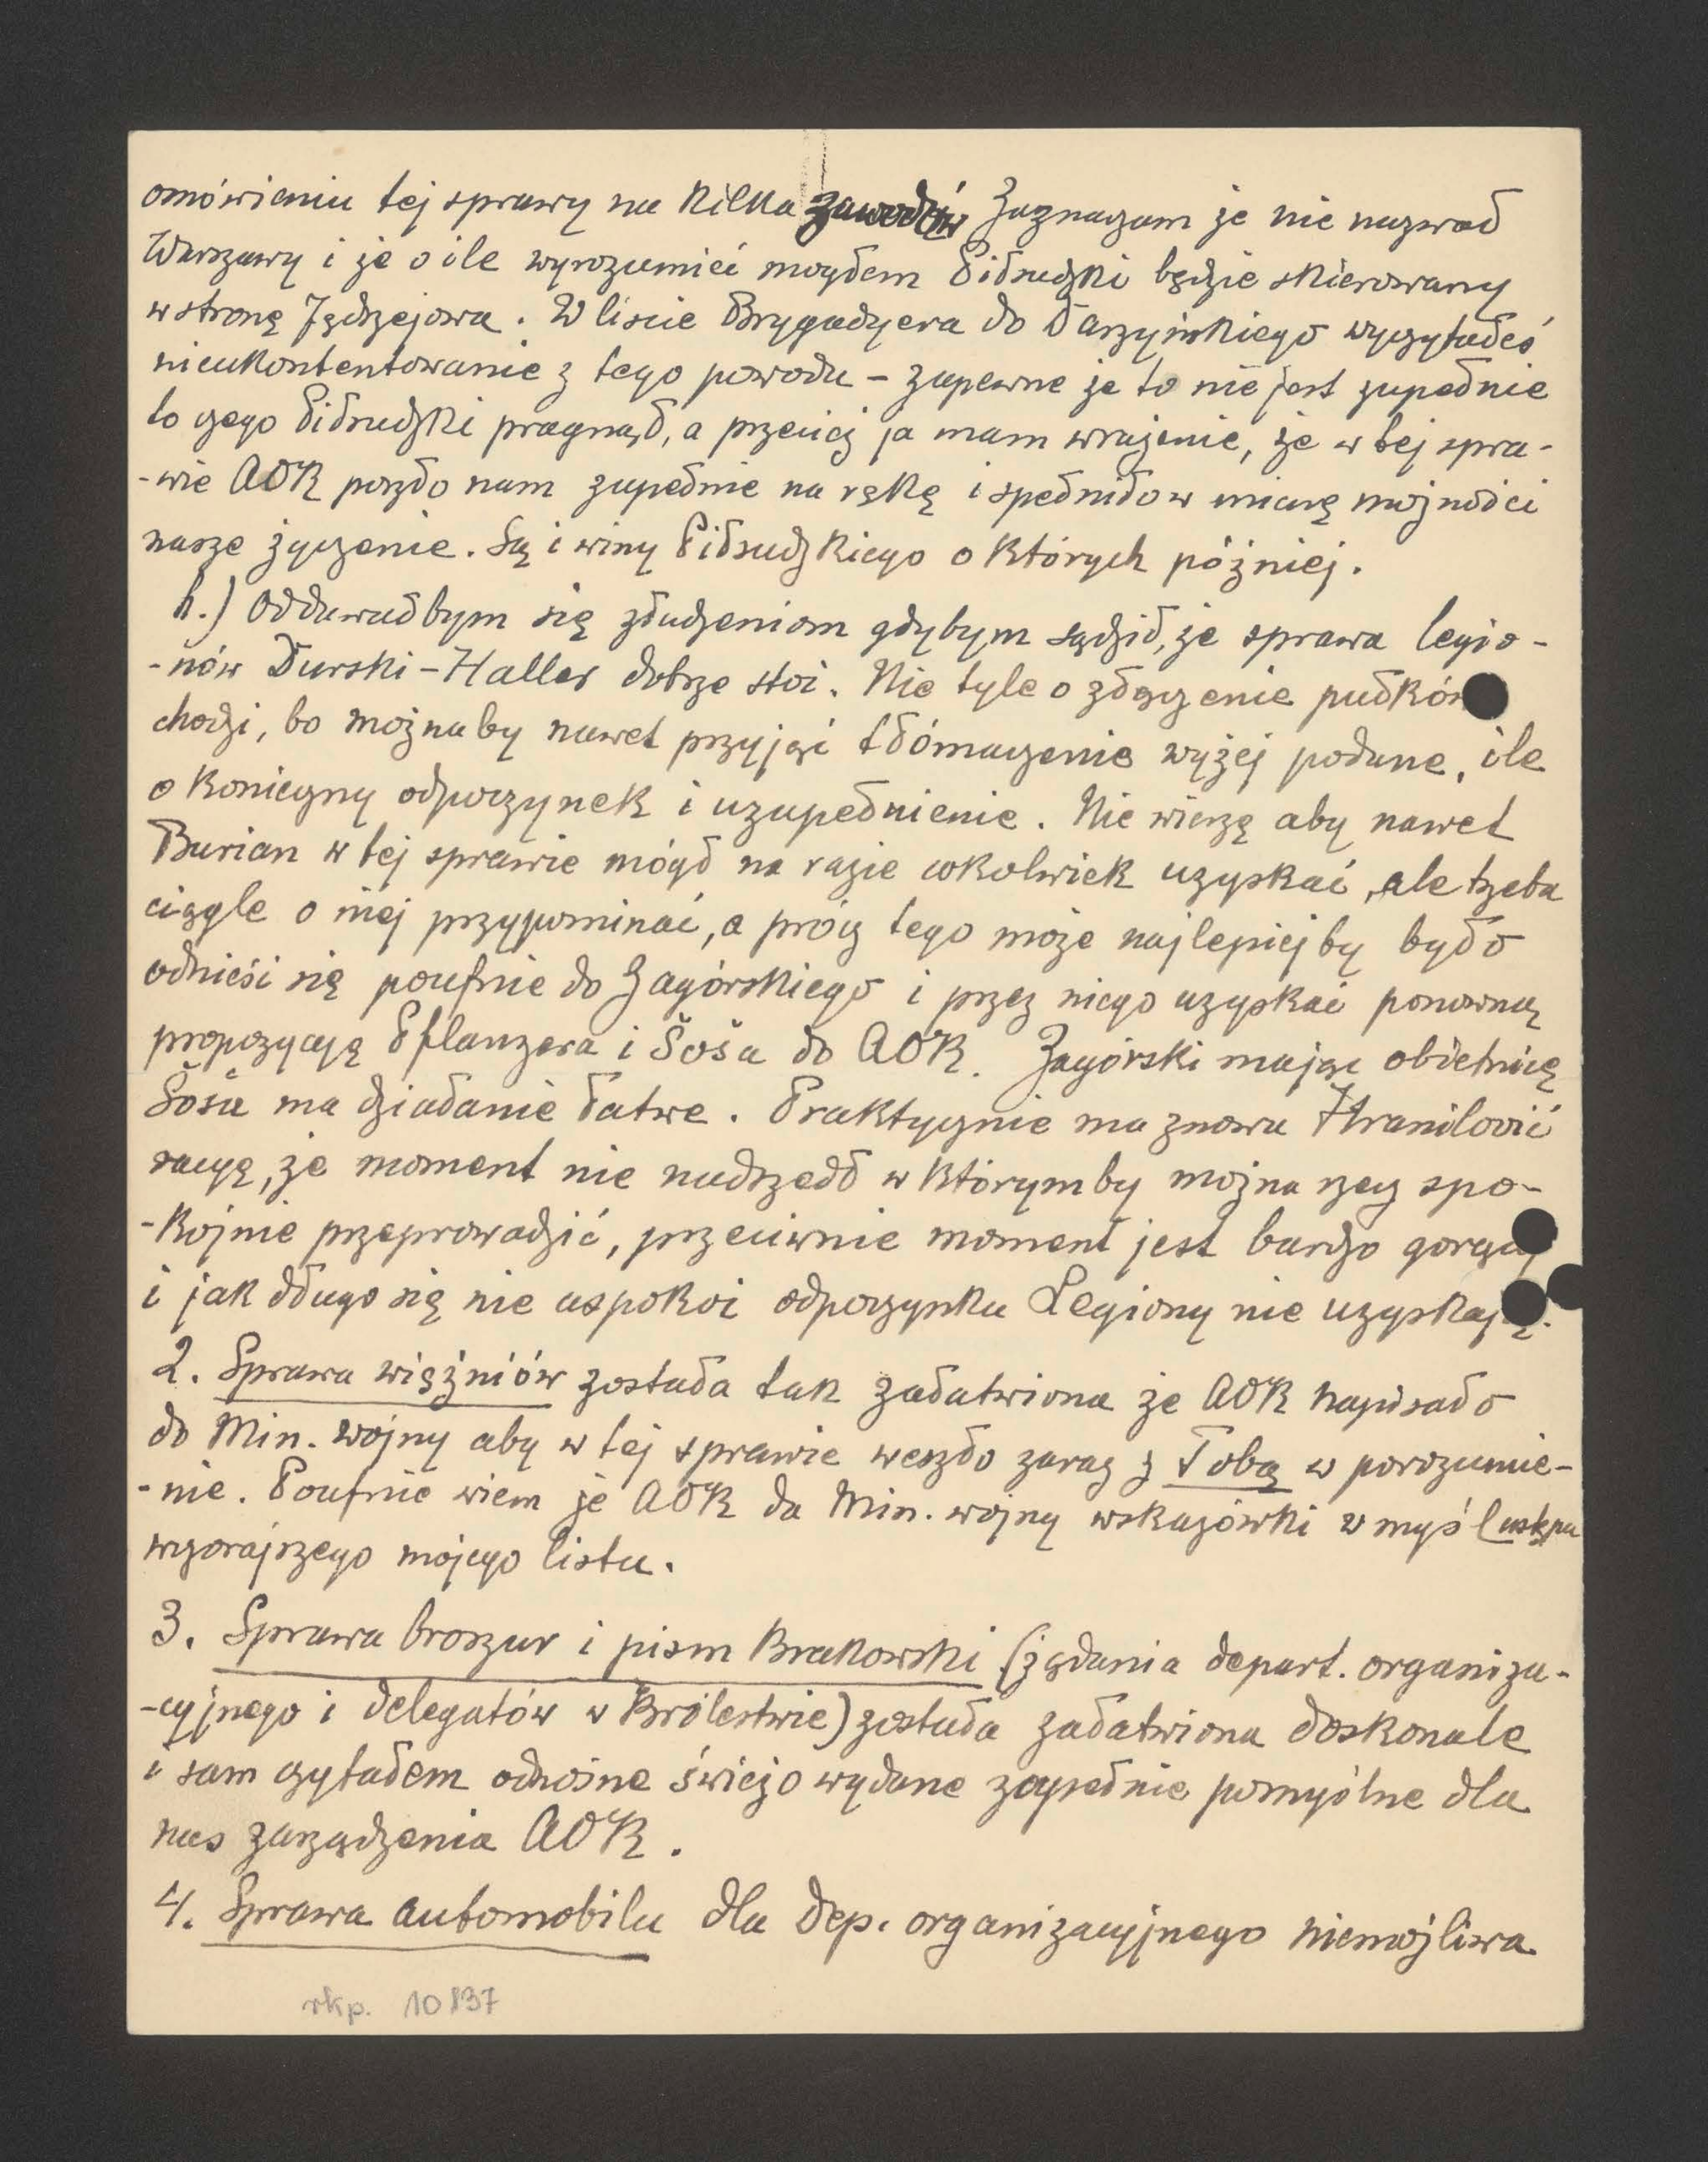 omówieniu tej sprawy na kilka zawodów Zaznaczam że nie nazwał
Warszawy i że o ile wyrozumieć mogłem Piłsudzki będzie skierowany
w stronę Jędrzejowa. W liście Brygadyera do Daszyńskiego wyczytałeś
nieukontentowanie z tego powodu – zapewne że to nie jest zupełnie
to czego Piłsudzki pragnął, a przecież ja mam wrażenie, że w tej spra-
-wie AOK poszło nam zupełnie na rękę i spełniło w miarę możności
nasze życzenie. Są i winy Piłsudzkiego o których później.
h.) Oddawałbym się złudzeniom gdybym sądził, że sprawa legio-
-nów Durski-Haller dobrze stoi. Nie tyle o złączenie pułków
chodzi, bo możnaby nawet przyjąć tłómaczenie wyżej podane, ile
o konieczny odpoczynek i uzupełnienie. Nie wierzę aby nawet
Burian w tej sprawie mógł na razie cokolwiek uzyskać, ale trzeba
ciągle o niej przypominać, a prócz tego może najlepiejby było
odnieść się poufnie do Zagórskiego i przez niego uzyskać ponowną
propozycyę Pflanzera i Šoša do AOK. Zagórski mając obietnicę
Šoša ma działanie łatwe. Praktycznie ma znowu Hranilović
racyę, że moment nie nadszedł w którymby można rzecz spo-
-kojnie przeprowadzić, przeciwnie moment jest bardzo gorący
i jak długo się nie uspokoi odpoczynku Legiony nie uzyskają.
2. Sprawa więźniów została tak załatwiona że AOK napisało
do Min. wojny aby w tej sprawie weszło zaraz z Tobą w porozumie-
-nie. Poufnie wiem że AOK da Min. wojny wskazówki w myśl ustępu
wczorajszego mojego listu.
3. Sprawa broszur i pism Krakowski (żądania depart. organiza-
-cyjnego i delegatów w Królestwie) została załatwiona doskonale
i sam czytałem odnośne świeżo wydane zupełnie pomyślne dla
nas zarządzenia AOK.
4. Sprawa automobilu dla dep. organizacyjnego niemożliwa
rkp. 10837